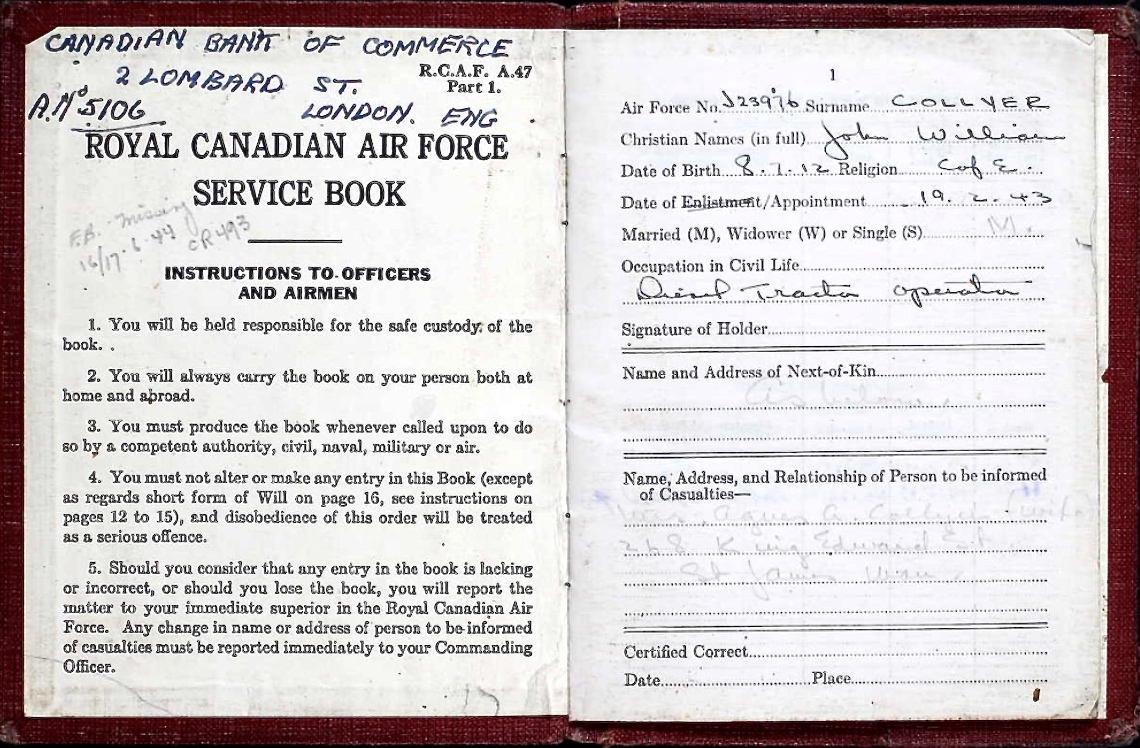 CANADIAN BANK OF COMMERCE
2 LOMBARD ST.
R.C.A.F. A.47
Part 1.
A.Nº 5106
LONDON. ENG
ROYAL CANADIAN AIR FORCE
SERVICE BOOK
F.B. missing
16/17-6-44 CR493
INSTRUCTIONS TO OFFICERS
AND AIRMEN
1. You will be held responsible for the safe custody of the
book.
2. You will always carry the book on your person both at
home and abroad.
3. You must produce the book whenever called upon to do
so by a competent authority, civil, naval, military or air.
4. You must not alter or make any entry in this Book (except
as regards short form of Will on page 16, see instructions on
pages 12 to 15), and disobedience of this order will be treated
as a serious offence.
5. Should you consider that any entry in the book is lacking
or incorrect, or should you lose the book, you will report the
matter to your immediate superior in the Royal Canadian Air
Force. Any change in name or address of person to be informed
of casualties must be reported immediately to your Commanding
Officer.
1
Air Force No. J23976 Surname COLLYER
Christian Names (in full) John William
Date of Birth 8.7.12 Religion C of E.
Date of Enlistment/Appointment 19.2.43
Married (M), Widower (W) or Single (S) M.
Occupation in Civil Life
Diesel Tractor operator
Signature of Holder
Name and Address of Next-of-Kin
As below.
Name, Address, and Relationship of Person to be informed
of Casualties—
Mrs. Agnes A. Collyer (wife
268 King Edward St.
St James Man
Certified Correct
Date Place